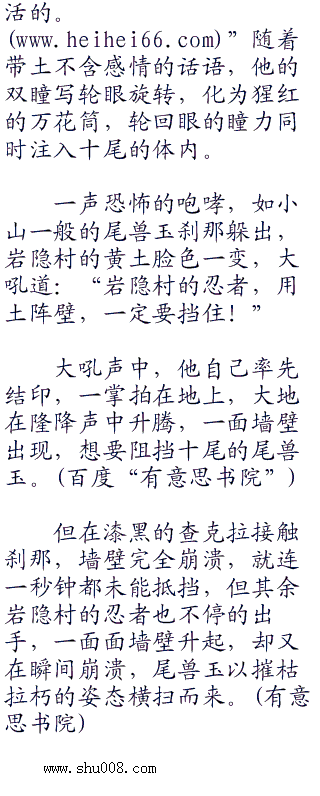 活的。
(www.heihei66.com)”随着
带土不含感情的话语，他的
双瞳写轮眼旋转，化为猩红
的万花筒，轮回眼的瞳力同
时注入十尾的体内。
一声恐怖的咆哮，如小
山一般的尾兽玉刹那躲出，
岩隐村的黄土脸色一变，大
吼道：“岩隐村的忍者，用
土阵壁，一定要挡住！”
大吼声中，他自己率先
结印，一掌拍在地上，大地
在隆降声中升腾，一面墙壁
出现，想要阻挡十尾的尾兽
玉。(百度“有意思书院”)
但在漆黑的查克拉接触
刹那，墙壁完全崩溃，就连
一秒钟都未能抵挡，但其余
岩隐村的忍者也不停的出
手，一面面墙壁升起，却又
在瞬间崩溃，尾兽玉以摧枯
拉朽的姿态横扫而来。(有意
思书院)
www.shu008.com